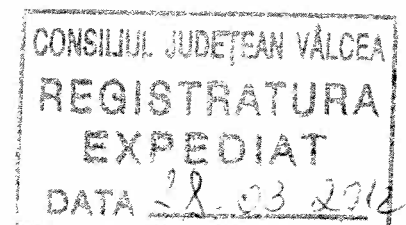 CONSILIUL JUDEȚEAN VÂLCEA
REGISTRATURA
EXPEDIAT
DATA 28.03